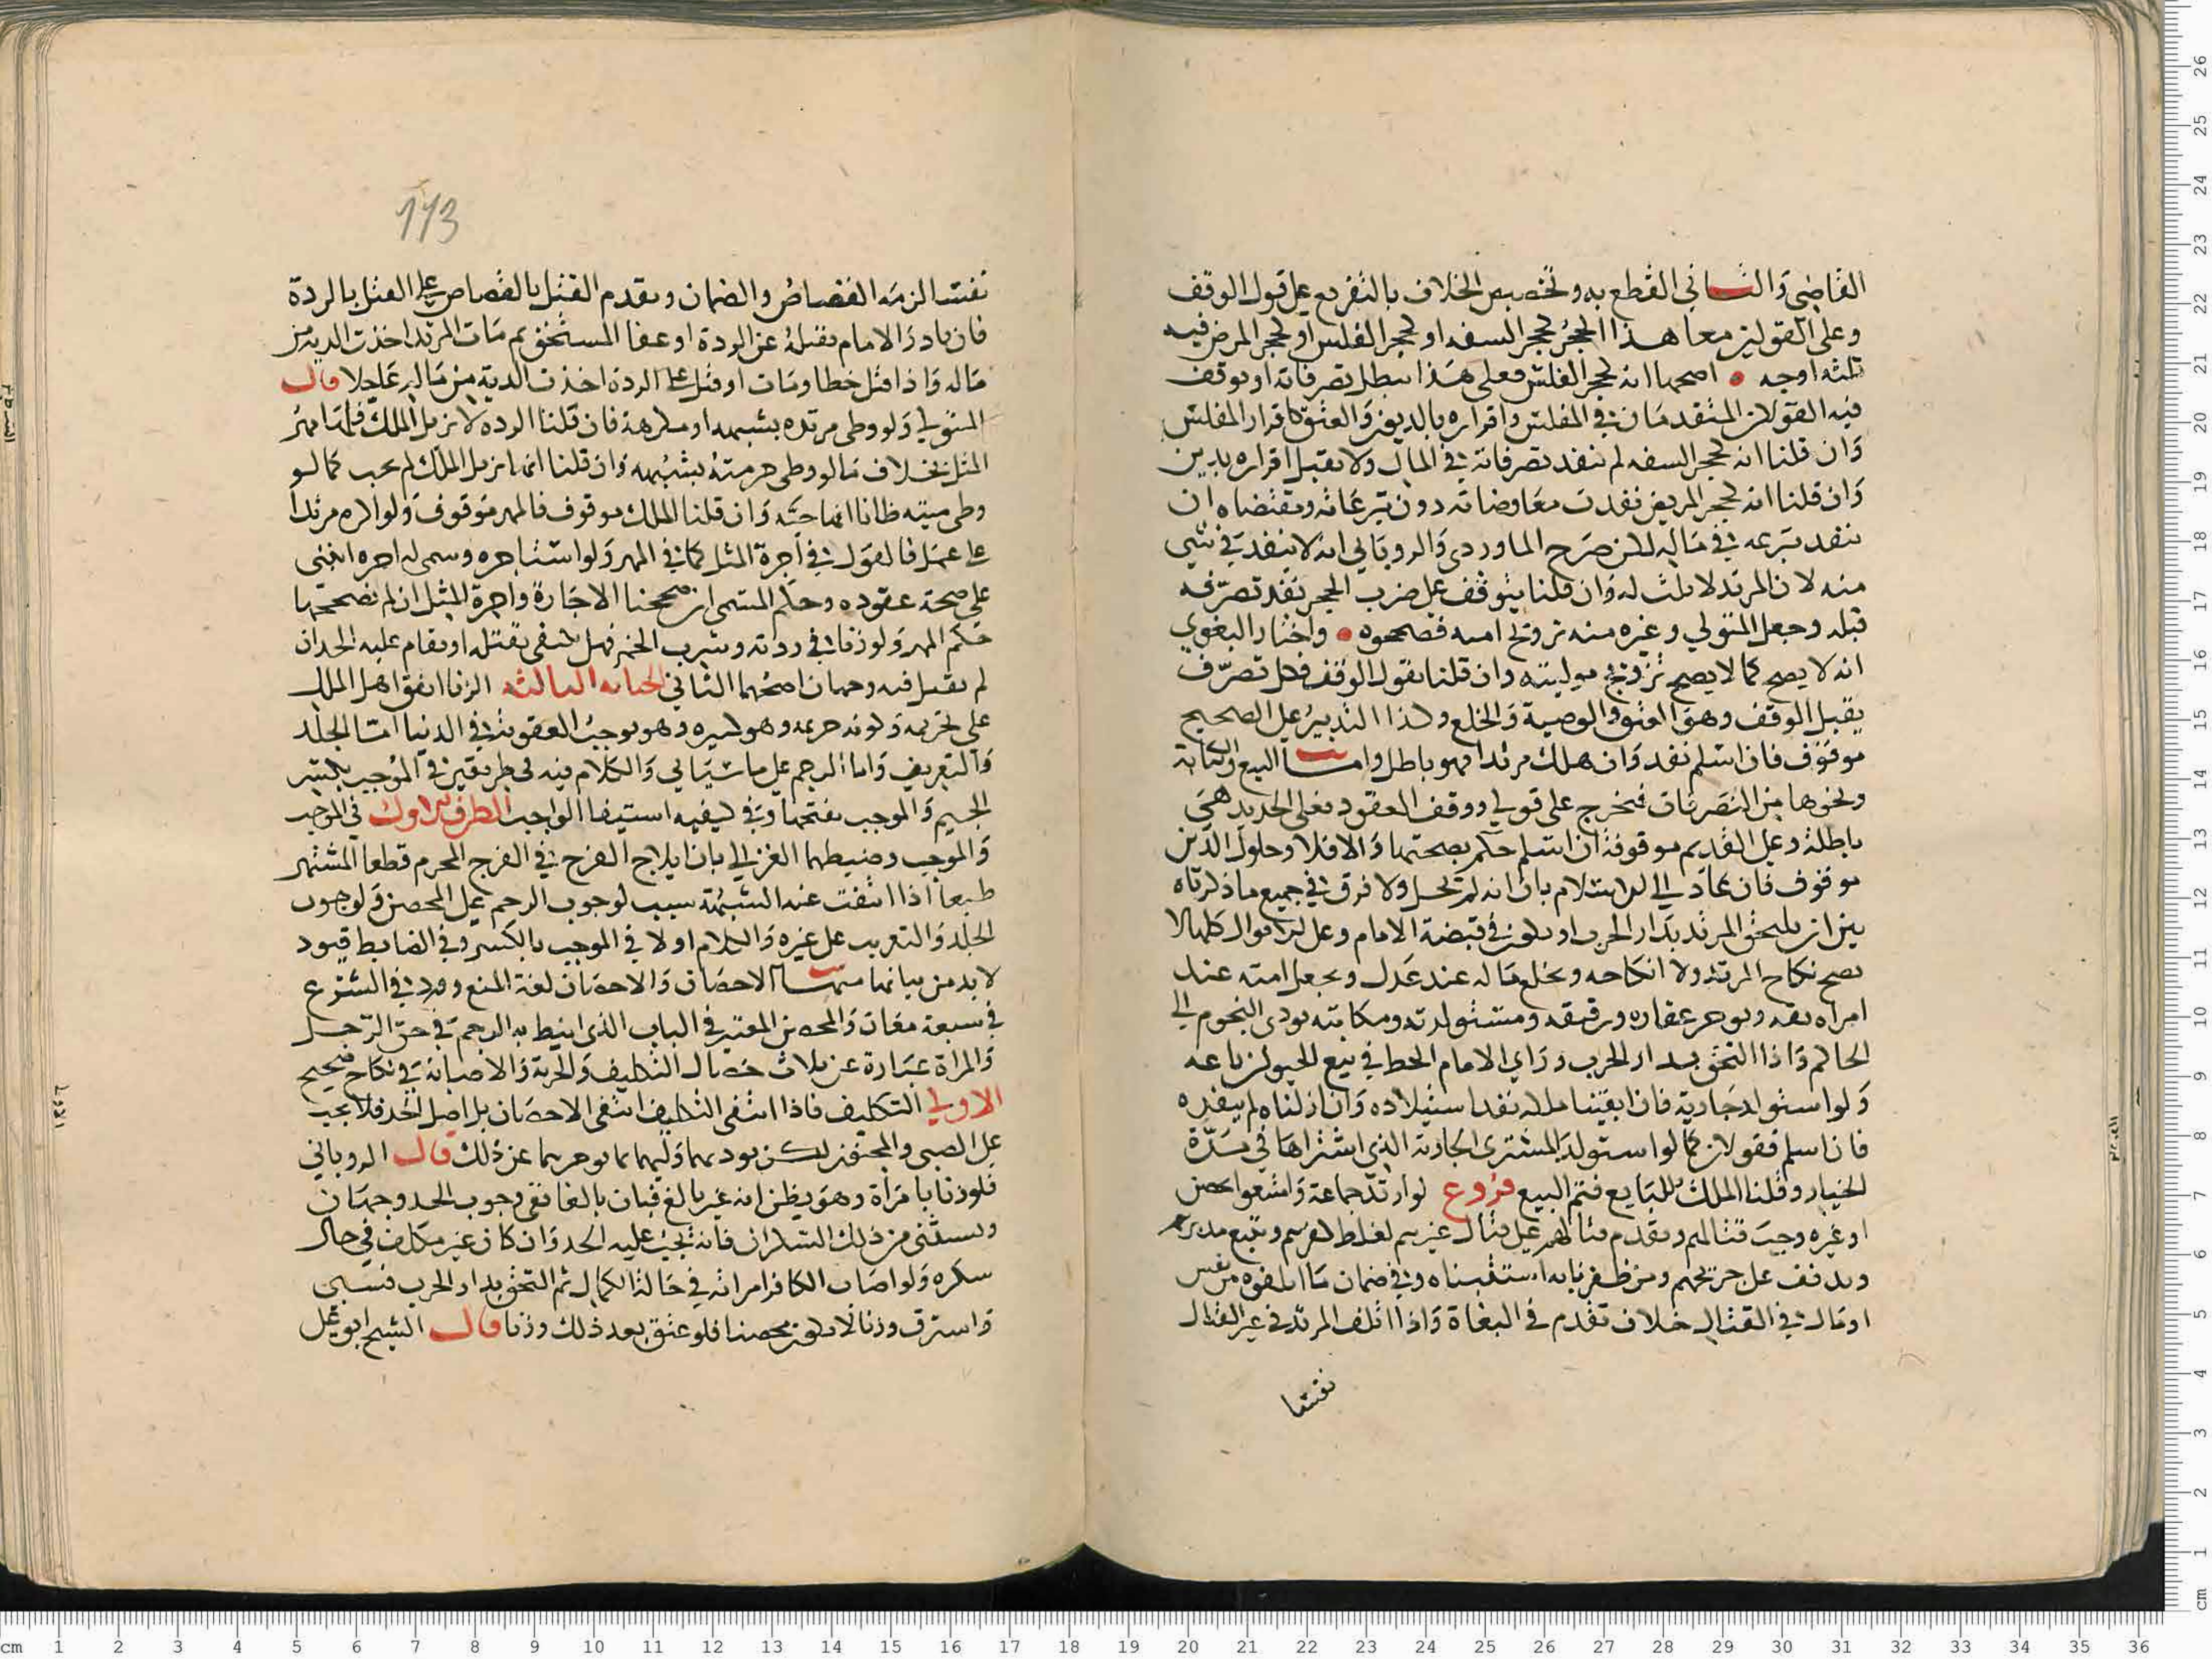 القاضي والثاني القطع به وتخصيص الخلاف بالتفريع على قول الوقف
وعلى القولين معا هذا الحجر كحجر السفه او كحجر الفلس او كحجر المرض فيه
ثلثة اوجه اصحها انه كحجر الفلس فعلى هذا تبطل تصرفاته او توقف
فيه القولان المتقدمان في المفلس واقراره بالديون والعتق كاقرار المفلس
وان قلنا انه كحجر السفه لم تنفد تصرفاته في المال ولا يقبل اقراره بدين
وان قلنا انه كحجر المريض نفدت معاوضاته دون تبرعاته ومقتضاه ان
ينفد تبرعه في ماله لكن صرح الماوردي والروياني انه لا ينفد في شي
منه لان المرتد لا ثلث له وان قلنا يتوقف على ضرب الحجر نفد تصرفه
قبله وجعل المتولي وغيره منه تزويج امته فصححوه واختار البغوي
انه لا يصح كما لا يصح تزويج موليته وان قلنا بقول الوقف فكل تصرف
يقبل الوقف وهو العتق والوصية والخلع وكذا التدبير على الصحيح
موقوف فان اسلم نفد وان هلك مرتدا فهو باطل واما البيع والكتابة
ونحوها من التصرفات فتخرج على قولي ووقف العقود فعلى الجديد هي
باطلة وعلى القديم موقوفة ان اسلم حكم بصحتها والا فلا وحلول الدين
موقوف فان عاد الى الاسلام بان انه لم يحل ولا فرق في جميع ما ذكرناه
بين ان يلتحق المرتد بدار الحرب او يكون في قبضة الامام وعلى الاقوال كلها لا
يصح نكاح المرتد ولا انكاحه ويجعل ماله عند عدل ويجعل امته عند
امراه ثقه ويوجر عقاره ورقيقه ومستولدته ومكاتبه يودى النجوم الى
الحاكم واذا التحق بدار الحرب وراي الامام الحظ في بيع الحيوان باعه
ولو استولد جارية فان ابقينا ملكه نفد استيلاده وان ازلناه لم ينفد
فان اسلم فقولان كما لو استولد المشترى الجارية الذي اشتراها في مدة
الخيار وقلنا الملك للبايع فتم البيع فروع لو ارتد جماعة وامتنعوا بحصن
او غيره وجب قتالهم ويقدم قتالهم على قتال غيرهم لغلظ كفرهم ويتبع مدبرهم
ويدفف على جريحهم ومن ظفرنا به استتبناه وفي ضمان ما اتلفوه من نفس
او مال في القتال خلاف تقدم في البغاة واذا اتلف المرتد في غير القتال
نفسا
113
نفسا لزمه القصاص والضمان ويقدم القتل بالقصاص على القتل بالردة
فان بادر الامام بقتله عن الردة او عفا المستحق ثم مات المرتد اخذت الدية من
ماله واذا قتل خطا ومات او قتل على الردة اخذت الدية من ماله عاجلا قال
المتولي ولو وطى مرتده بشبهه او مكرهة فان قلنا الرده لا تزيل الملك فلها مهر
المثل بخلاف ما لو وطى حرمته بشبهه وان قلنا انها تزيل الملك لم يجب كما لو
وطى ميته ظانا انها حيه وان قلنا الملك موقوف فالمهر موقوف ولو اكره مرتدا
على عمل فالقول في اجرة المثل كما في المهر ولو استاجره وسمى له اجره انبنى
على صحة عقوده وحكم المسمى ان صححنا الاجارة واجرة المثل ان لم نصححها
حكم المهر ولو زنا في ردته وشرب الخمر فهل يكتفى بقتله او يقام عليه الحد ان
لم يقتل فيه وجهان اصحهما الثاني الجنايه الثالثه الزنا اتفق اهل الملل
على تحريمه وكونه جريمه وهو كبيره وهو موجب العقوبة في الدنيا اما الجلد
والتغريب واما الرجم على ما سياتي والكلام فيه في طريقين في الموجب بكسر
الجيم والموجب بفتحها وفي كيفيه استيفا الواجب الطرف الاول في الموجب
والموجب وضبطها الغزالي بان ايلاج الفرج في الفرج المحرم قطعا المشتهر
طبعا اذا انتفت عنه الشبهة سبب لوجوب الرجم على المحصن ولوجوب
الجلد والتغريب على غيره والكلام اولا في الموجب بالكسر وفي الضابط قيود
لا بد من بيانها منها الاحصان والاحصان لغة المنع وورد في الشرع
في سبعة معان والمحصن المعتبر في الباب الذي انيط به الرجم في حق الرجل
والمراة عبارة عن ثلاث خصال التكليف والحرية والاصابة في نكاح صحيح
الاولى التكليف فاذا انتفى التكليف انتفى الاحصان بل اصل الحد فلا يجب
على الصبي والمجنون لكن يودبهما وليهما بما يوجرهما عن ذلك قال الروياني
فلو زنا بامراة وهو يظن انه غير بالغ فبان بالغا ففي وجوب الحد وجهان
ويستثنى من ذلك السكران فانه يجب عليه الحد وان كان غير مكلف في حال
سكره ولو اصاب الكافر امراته في حالة الكمال ثم التحق بدار الحرب فسبى
واسترق وزنا لا يكون محصنا فلو عتق بعد ذلك وزنا قال الشيخ ابو على